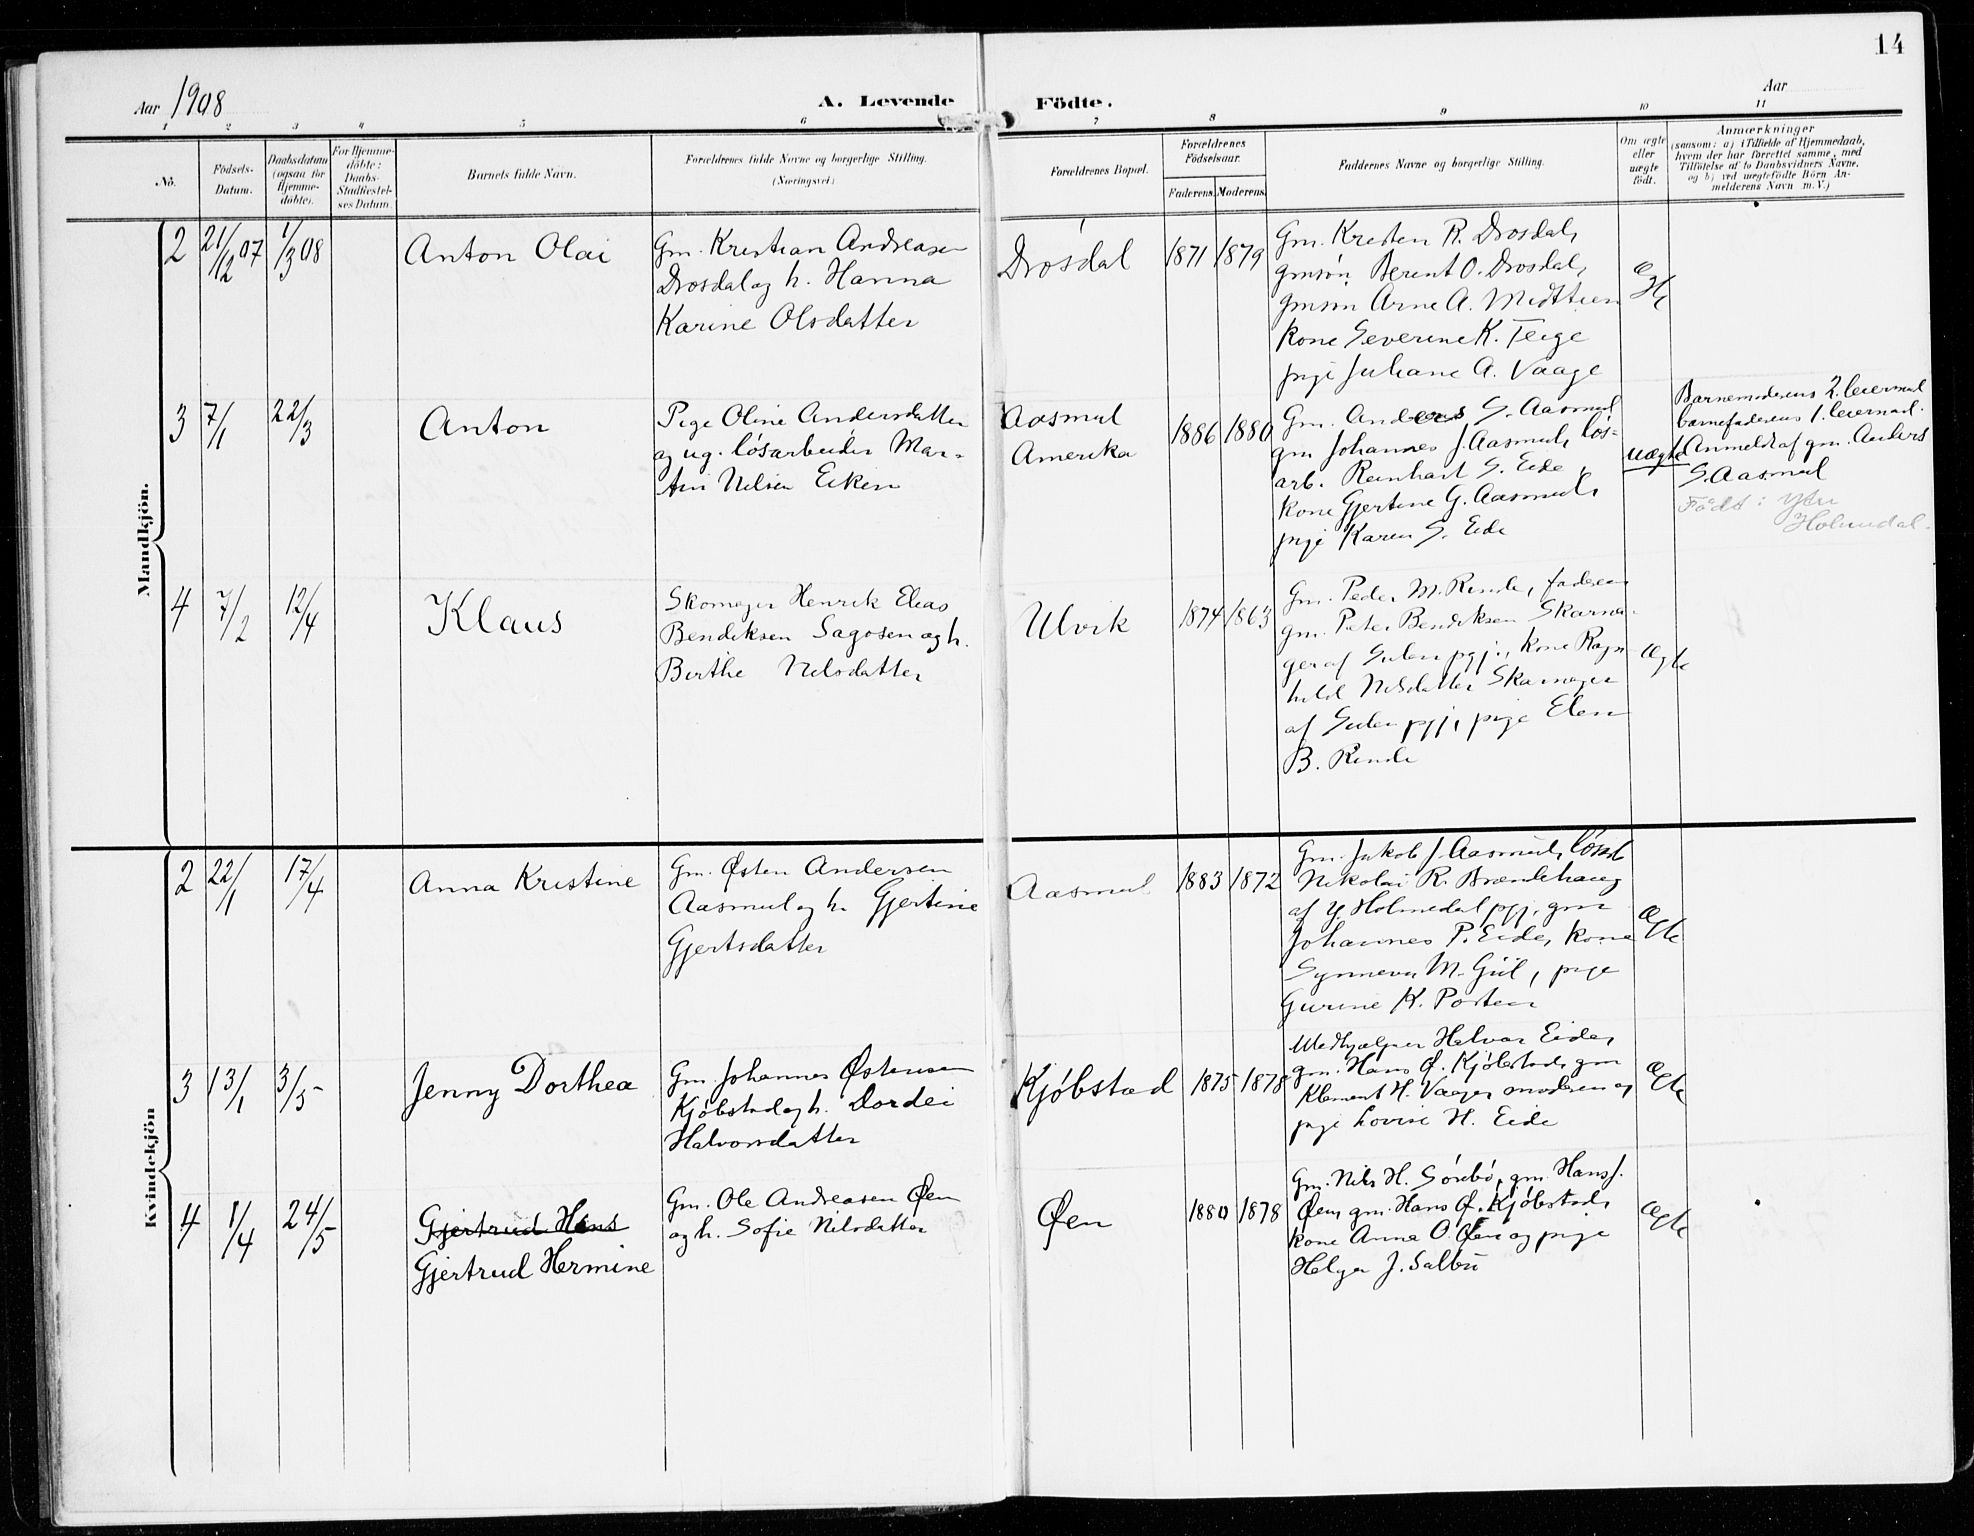 14
Aar 1908
A. Levende Födte.
Aar
1 2 3 4 5 6 7 8 9 10 11
No.
Födsels-
Datum.
Daabsdatum
(ogsaa for
Hjemme-
döbte).
For Hjemme-
döbte:
Daabs-
Stadfæstel-
ses Datum.
Barnets fulde Navn.
Forældrenes fulde Navne og borgerlige Stilling.
(Næringsvei)
Forældrenes Bopæl.
Forældrenes
Födselsaar.
Faderens. Moderens.
Faddernes Navne og borgerlige Stilling.
Om ægte
eller
uægte
födt.
Anmærkninger
(saasom: a) i Tilfælde af Hjemmedaab,
hvem der har forrettet samme, med
Tilföielse af to Daabsvidners Navne,
og b) ved uægtefödte Börn An-
melderens Navn m. V.)
Mandkjön.
2
21/12 07
1/3 08
Anton Olai
Gm. Kristian Andreasen
Drosdal og h. Hanna
Karine Olsdatter
Drosdal
1871
1879
Gm. Kresten R. Drosdal,
gmsøn Berent O. Drosdal,
gmsøn Arne A. Midttun
kone Severine K. Teige
pige Juliane A. Vaage
ægte
3
7/1
22/3
Anton
Pige Oline Andersdatter
og ug. løsarbeider Mar-
tin Nilsen Eiken
Aasmul
Amerika
1886
1880
Gm. Anders S. Aasmul
gm Johannes J. Aasmul, løs-
arb. Reinhart S. Eide,
kone Gjertine G. Aasmul,
pige Karen S. Eide
uægte
Barnemoderens 2. leiermaal
barnefaderens 1. leiermaal.
Anmeldt af gm. Anders
S. Aasmul
Født: Ytre
Holmedal.
4
7/2
12/4
Klaus
Skomager Henrik Elias
Bendiksen Sagosen og h.
Birthe Nilsdatter
Ulvik
1874
1863
Gm. Peder M. Rinde, faderen
gm. Peter Bendiksen Skarna-
ger af Gulen pgj., kone Ragn
hild Nilsdatter Skarnager
af Gulen pgj, pige Elen
B. Rinde
Ægte
Kvindekjön
2
22/1
17/4
Anna Kristine
Gm. Østen Andersen
Aasmul og h. Gjertine
Gjertsdatter
Aasmul
1883
1872
Gm. Jakob J. Aasmul, løsarb
Nikolai R. Brændehaug
af Y. Holmedal pgj, gm
Johannes P. Eide, kone
Synneva M. Gül, pige
Gurine K. Porteen
Ægte
3
13/1
3/5
Jenny Dorthea
Gm Johannes Østensen
Kjøbstad og h. Dordei
Halvorsdatter
Kjøbstad
1875
1878
Medhjælper Halvor Eide,
gm. Hans Ø. Kjøbstad, gm
Klement H. Vaage, moderen og
pige Lovise H. Eide
Ægte
4
1/4
24/5
Gjertrud Hans
Gjertrud Hermine
Gm. Ole Andreasen Øen
og h. Sofie Nilsdatter
Øen
1880
1878
Gm. Nils H. Sørebø, gm Hans J.
Øen, gm. Hans Ø. Kjøbstad,
kone Anna O. Øen og pige
Helga J. Salbu
Ægte